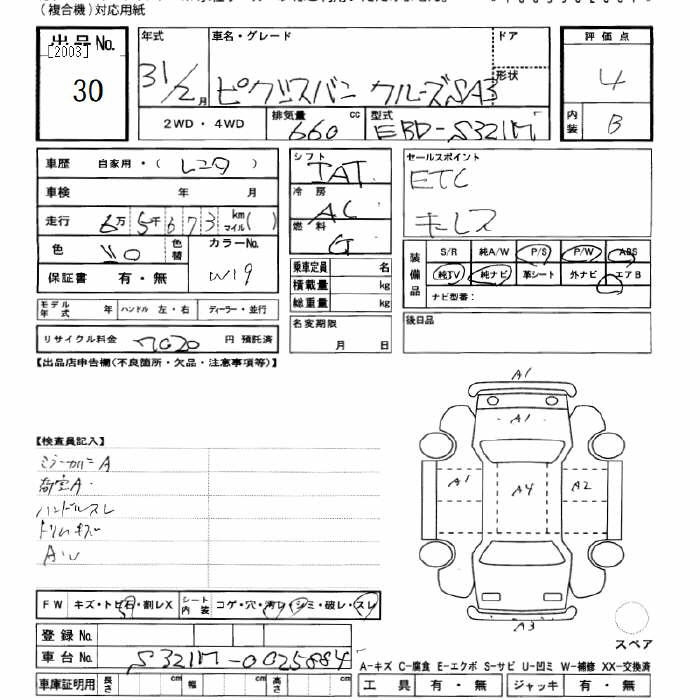 (複合機)対応用紙
出品No. [2003] 30
年式 31/2月
車名・グレード ピクシスバン クルーズSA3
ドア
形状
2WD・4WD
排気量 660 cc
型式 EBD-S321M
評価点 4
内装 B
車歴 自家用・(レンタ)
車検 年 月
走行 6万5千673 km マイル( )
色
色替
カラーNo. W19
保証書 有・無
モデル年式 年 ハンドル 左・右 ディーラー・並行
リサイクル料金 円 預託済
シフト AT
冷房 AC
燃料 G
乗車定員 名
積載量 kg
総重量 kg
名変期限 月 日
セールスポイント
ETC
キーレス
装備品
S/R 純A/W P/S P/W ABS
純TV 純ナビ 革シート 外ナビ エアB
ナビ型番:
後日品
【出品店申告欄(不良箇所・欠品・注意事項等)】
【検査員記入】
荷室A
ハンドルスレ
トリムキズ
A1
A1
A1
A4
A2
A3
スペア
FW キズ・トビ石・割レX
シート内装 コゲ・穴・汚レ・シミ・破レ・スレ
登録No.
車台No. S321M-0025884
車庫証明用 長さ cm 幅 cm 高さ cm
A-キズ C-腐食 E-エクボ S-サビ U-凹ミ W-補修 XX-交換済
工具 有・無 ジャッキ 有・無